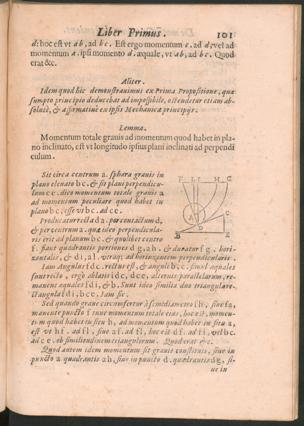 Liber Primus. 101
d: hoc est vt ab, ad bc. Est ergo momentum c, ad d, vel ad
momentum a, ipsi momento d, æquale, vt ab, ad bc. Quod
erat &c.
Aliter.
Idem quod hic demonstrauimus ex Prima Propositione, quæ
sumpto principio deducebat ad impossibile, ostendetur etiam ab-
solutè, & affirmatiuè ex ipsis Mechanicæ principijs.
Lemma.
Momentum totale grauis ad momentum quod habet in pla
no inclinato, est vt longitudo ipsius plani inclinati ad perpendi
culum.
Sit circa centrum a, sphæra grauis in
plano eleuato bc, & sit plani perpendicu-
lum ce. dico momentum totale grauis a,
ad momentum peculiare quod habet in
plano bc, esse vt bc, ad ce.
Producatur recta d a, per contactum d,
& per centrum a, quæ ideo perpendicula-
ris erit ad planum bc, & quolibet centro
f, fiant quadrantis portiones dg, ah, & ducatur fg, hori-
zontales, & di, al, verticales horizonti perpendiculares.
Iam Angulus fdc, rectus est, & angulis b, c, simul æquales
sunt recto, ergo ablatis idc, dce, alternis parallelarum, re-
manent æquales fdi, & b. Sunt ideo similia duo triangula re-
ctangula dif, bce. Iam sic.
Sed quando graue circumfertur à semidiametro fh, siue fa,
manente puncto f tunc momentum totale eius, hoc est, momen-
tum quod habet in situ h, ad momentum quod habet in situ a,
est vt hf, ad fl, siue af, ad fl, hoc est df, ad fi, vel bc,
ad ce, ob similitudinem triangulorum. Quod erat &c.
Quod autem idem momentum sit grauis constituti, siue in
puncto a quadrantis ah, siue in puncto d, quadrantis dg, si-
ue in
F L I H G
A
D
C
B E